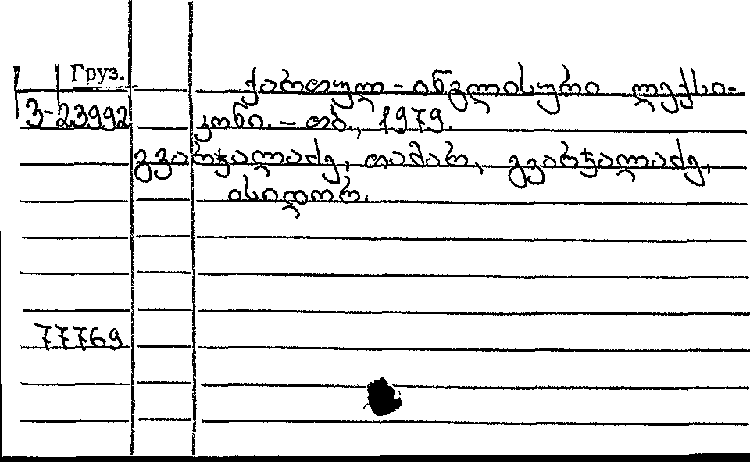 Груз.
ქართულ-ინგლისური ლექსი-
3-23992 კონი. - თბ., 1979.
გვარჯალაძე, თამარ, გვარჯალაძე,
ისიდორ.
77769